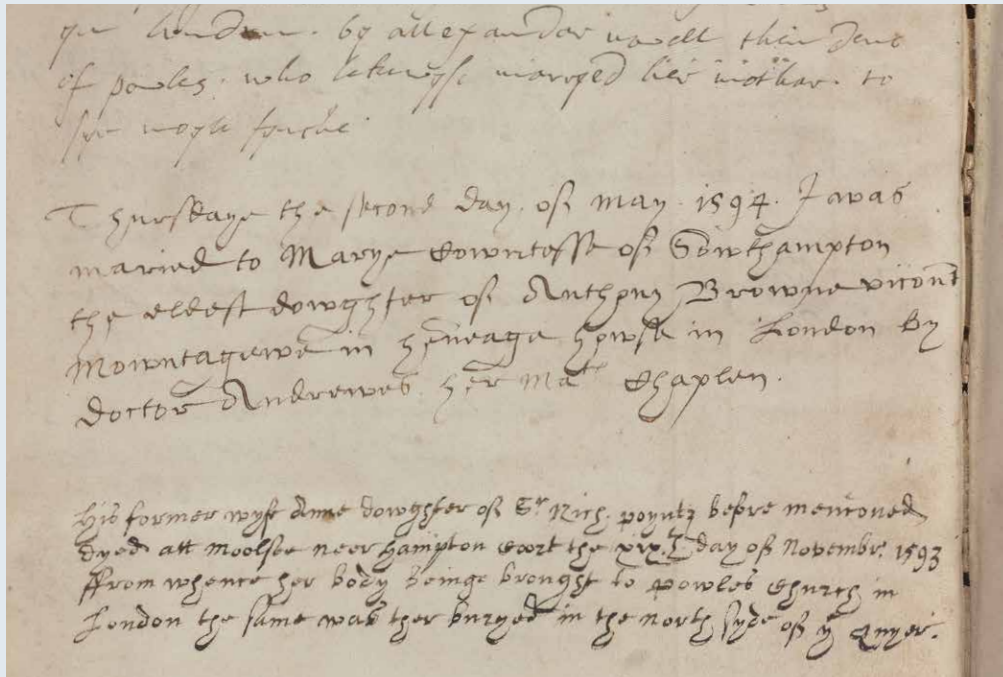 by allexandar nowell then dene
of powles. who lekewyse marryed her mother. to
syr
Thursdaye the second day. of may. 1594. I was
maried to Marye Cowntesse of Sowthampton
the eldest dowghter of Anthony Browne vicont
Mowntagewe in heneage howse in London by
doctor Andrewes. her Matis Chaplen.
His former wyfe Anne dowghter of Sr Rich. poyntz before mencioned
dyed att moolsee neer hampton Coort the day of Novembr. 1593
ffrom whence her body beinge brought to powles Church in
London the same was ther buryed in the north syde of ye Quyer.